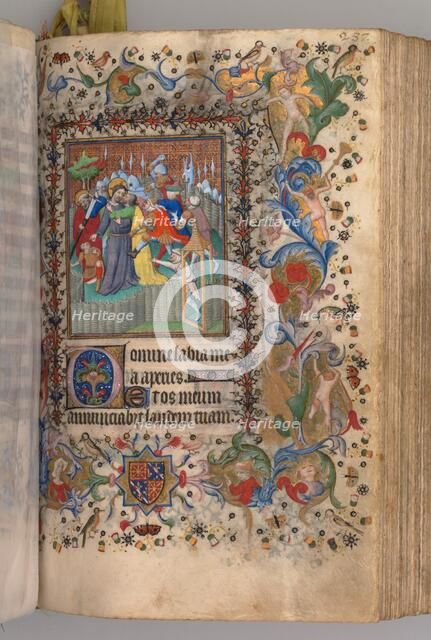 237
Domine labia me
a aperies.
Et os meum
annunciabit laudem tuam
Heritage
Heritage
Heritage
Heritage
Heritage
Heritage